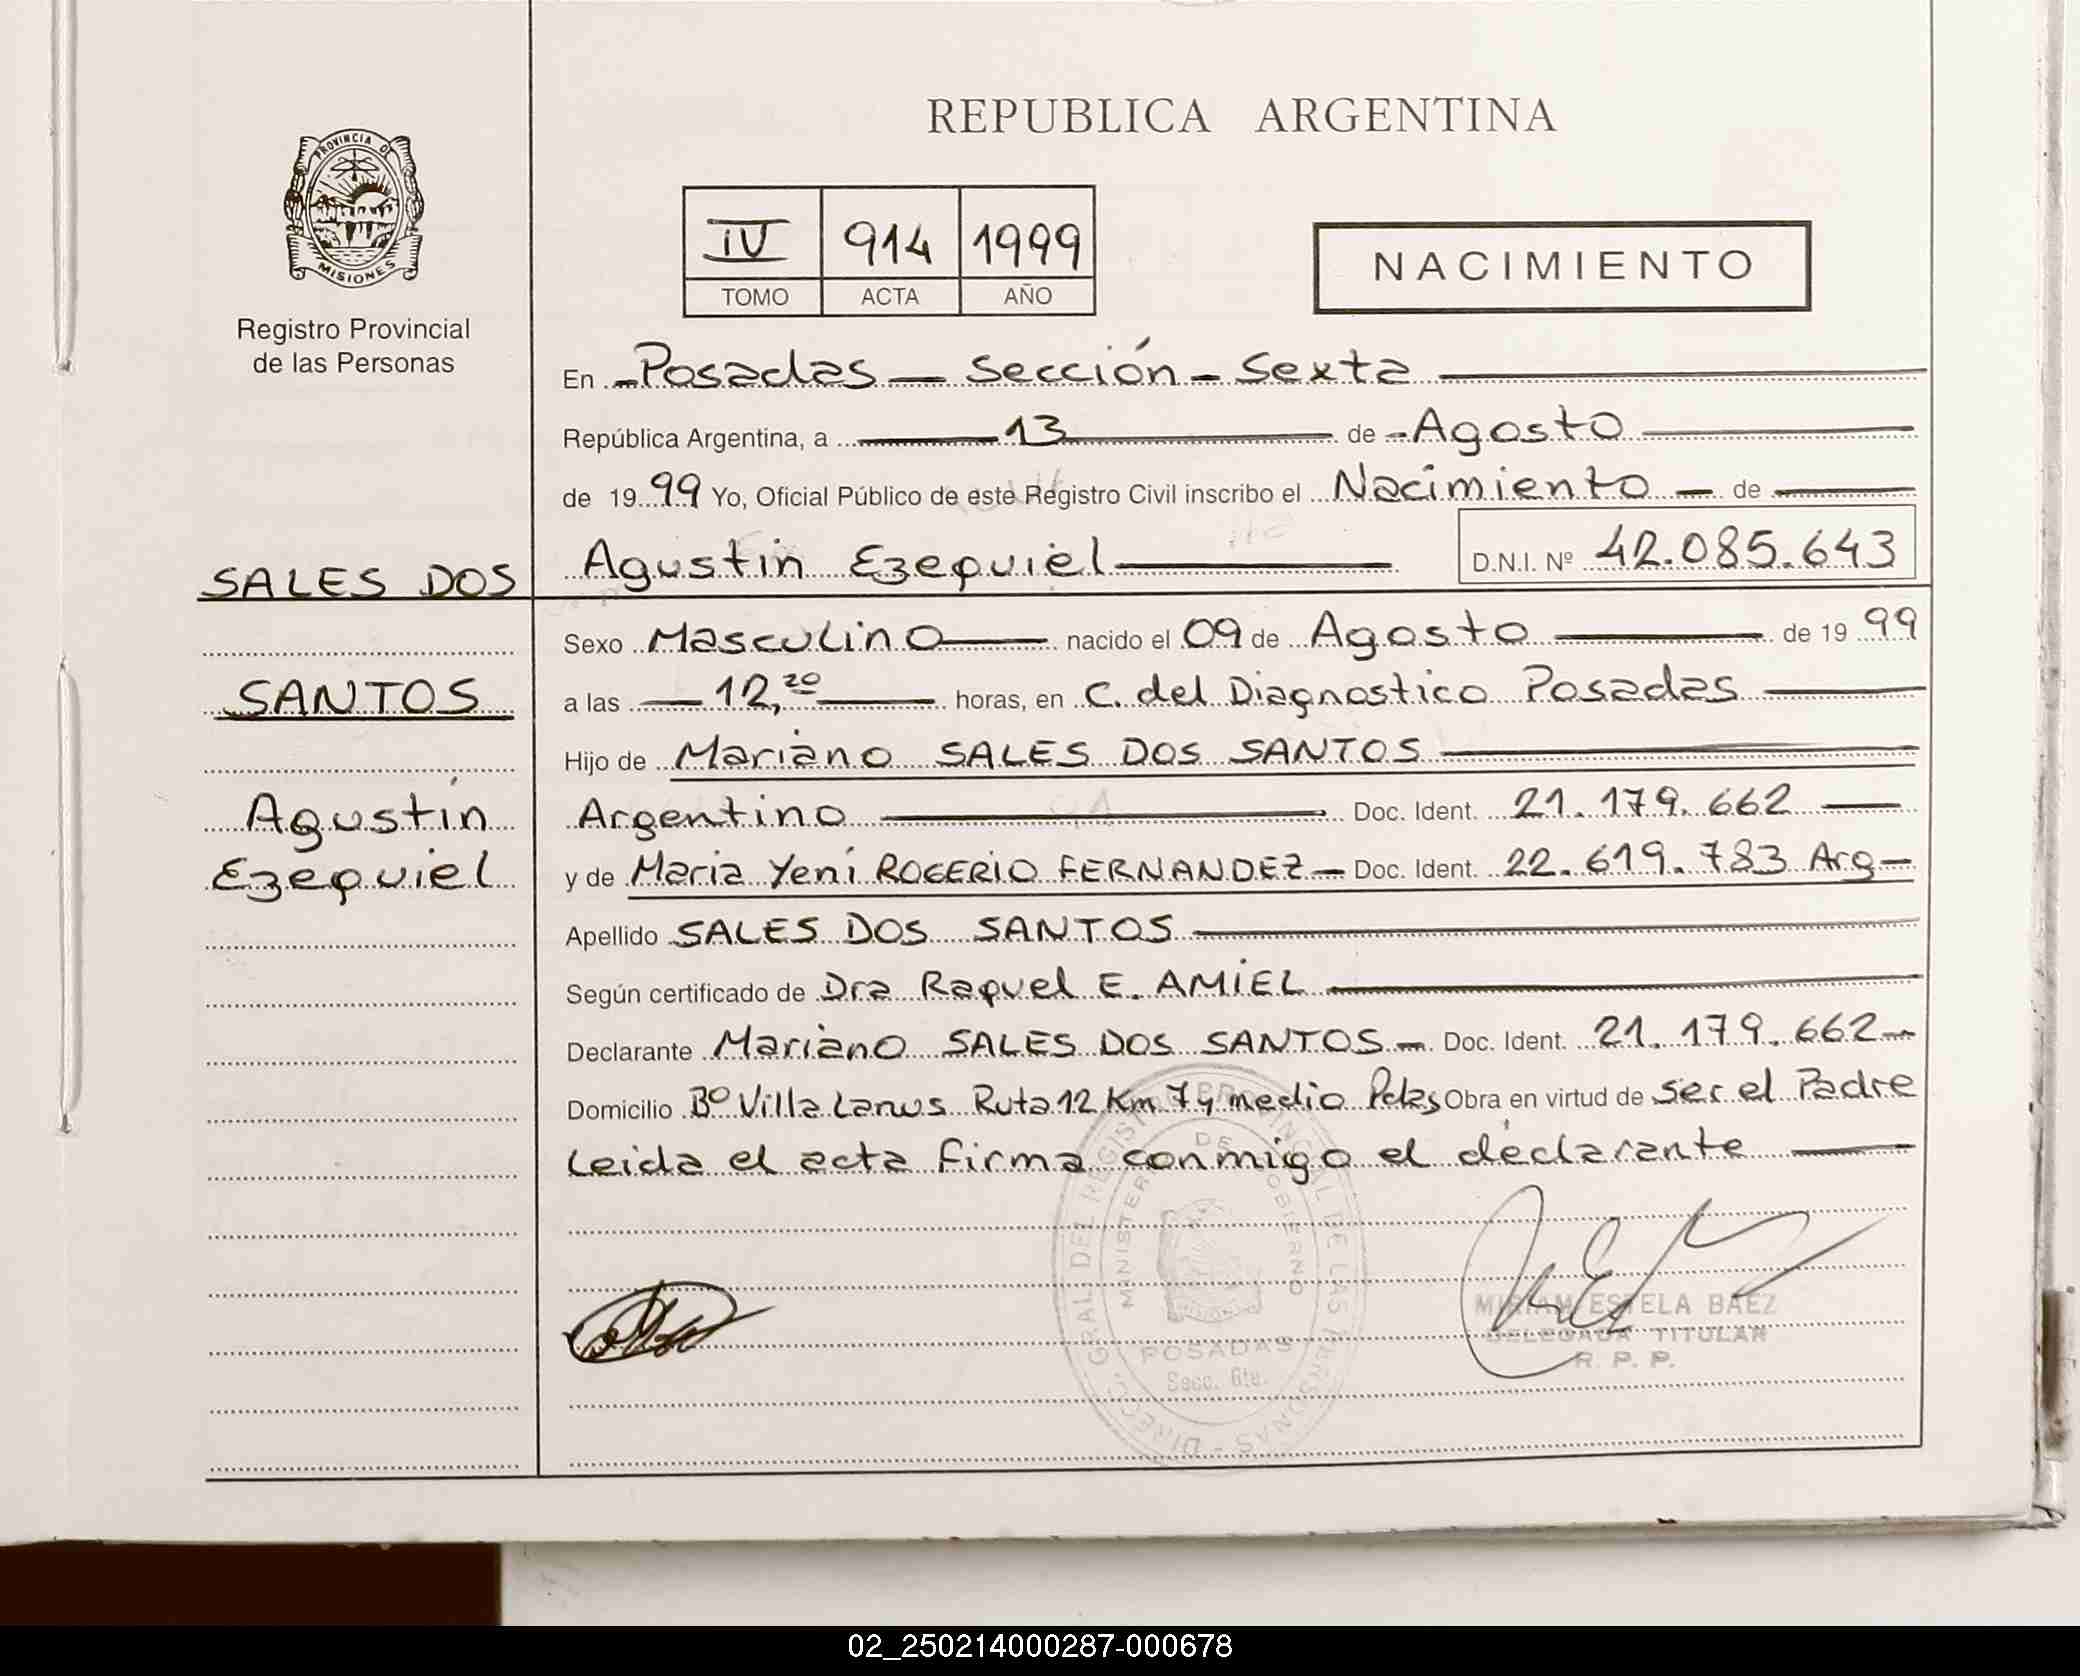 REPUBLICA ARGENTINA
PROVINCIA DE
MISIONES
Registro Provincial
de las Personas
IV 914 1999
TOMO ACTA AÑO
NACIMIENTO
En Posadas - Sección - Sexta
República Argentina, a 13 de Agosto
de 1999 Yo, Oficial Público de este Registro Civil inscribo el Nacimiento de
Agustin Ezequiel D.N.I. Nº 42.085.643
SALES DOS
SANTOS
Agustín
Ezequiel
Sexo Masculino nacido el 09 de Agosto de 1999
a las 12,20 horas, en C. del Diagnostico Posadas
Hijo de Mariano SALES DOS SANTOS
Argentino Doc. Ident. 21.179.662
y de Maria Yeni ROGERIO FERNANDEZ - Doc. Ident. 22.619.783 Arg-
Apellido SALES DOS SANTOS
Según certificado de Dra Raquel E. AMIEL
Declarante Mariano SALES DOS SANTOS - Doc. Ident. 21.179.662-
Domicilio Bº Villa Lanus Ruta 12 Km 7 y medio Pdas Obra en virtud de ser el Padre
Leida el acta firma conmigo el declarante
DIREC. GRAL. DEL REGISTRO PROVINCIAL DE LAS PERSONAS -
MINISTERIO DE GOBIERNO
POSADAS
Secc. 6ta.
MIRIAM ESTELA BAEZ
DELEGADA TITULAR
R. P. P.
02_250214000287-000678